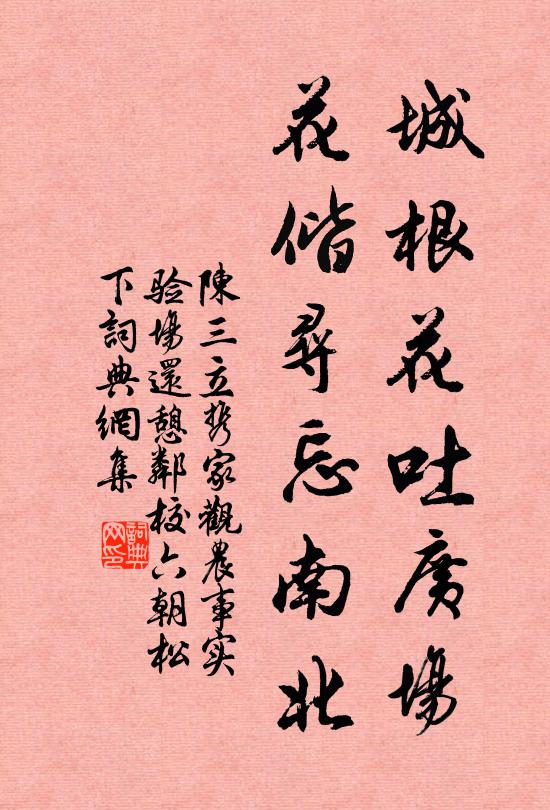 城根花吐廣場
花偕尋忘南北
陳三立携家觀農事实
验場還憩鄰校六朝松
下詞典網集
詞典
网印